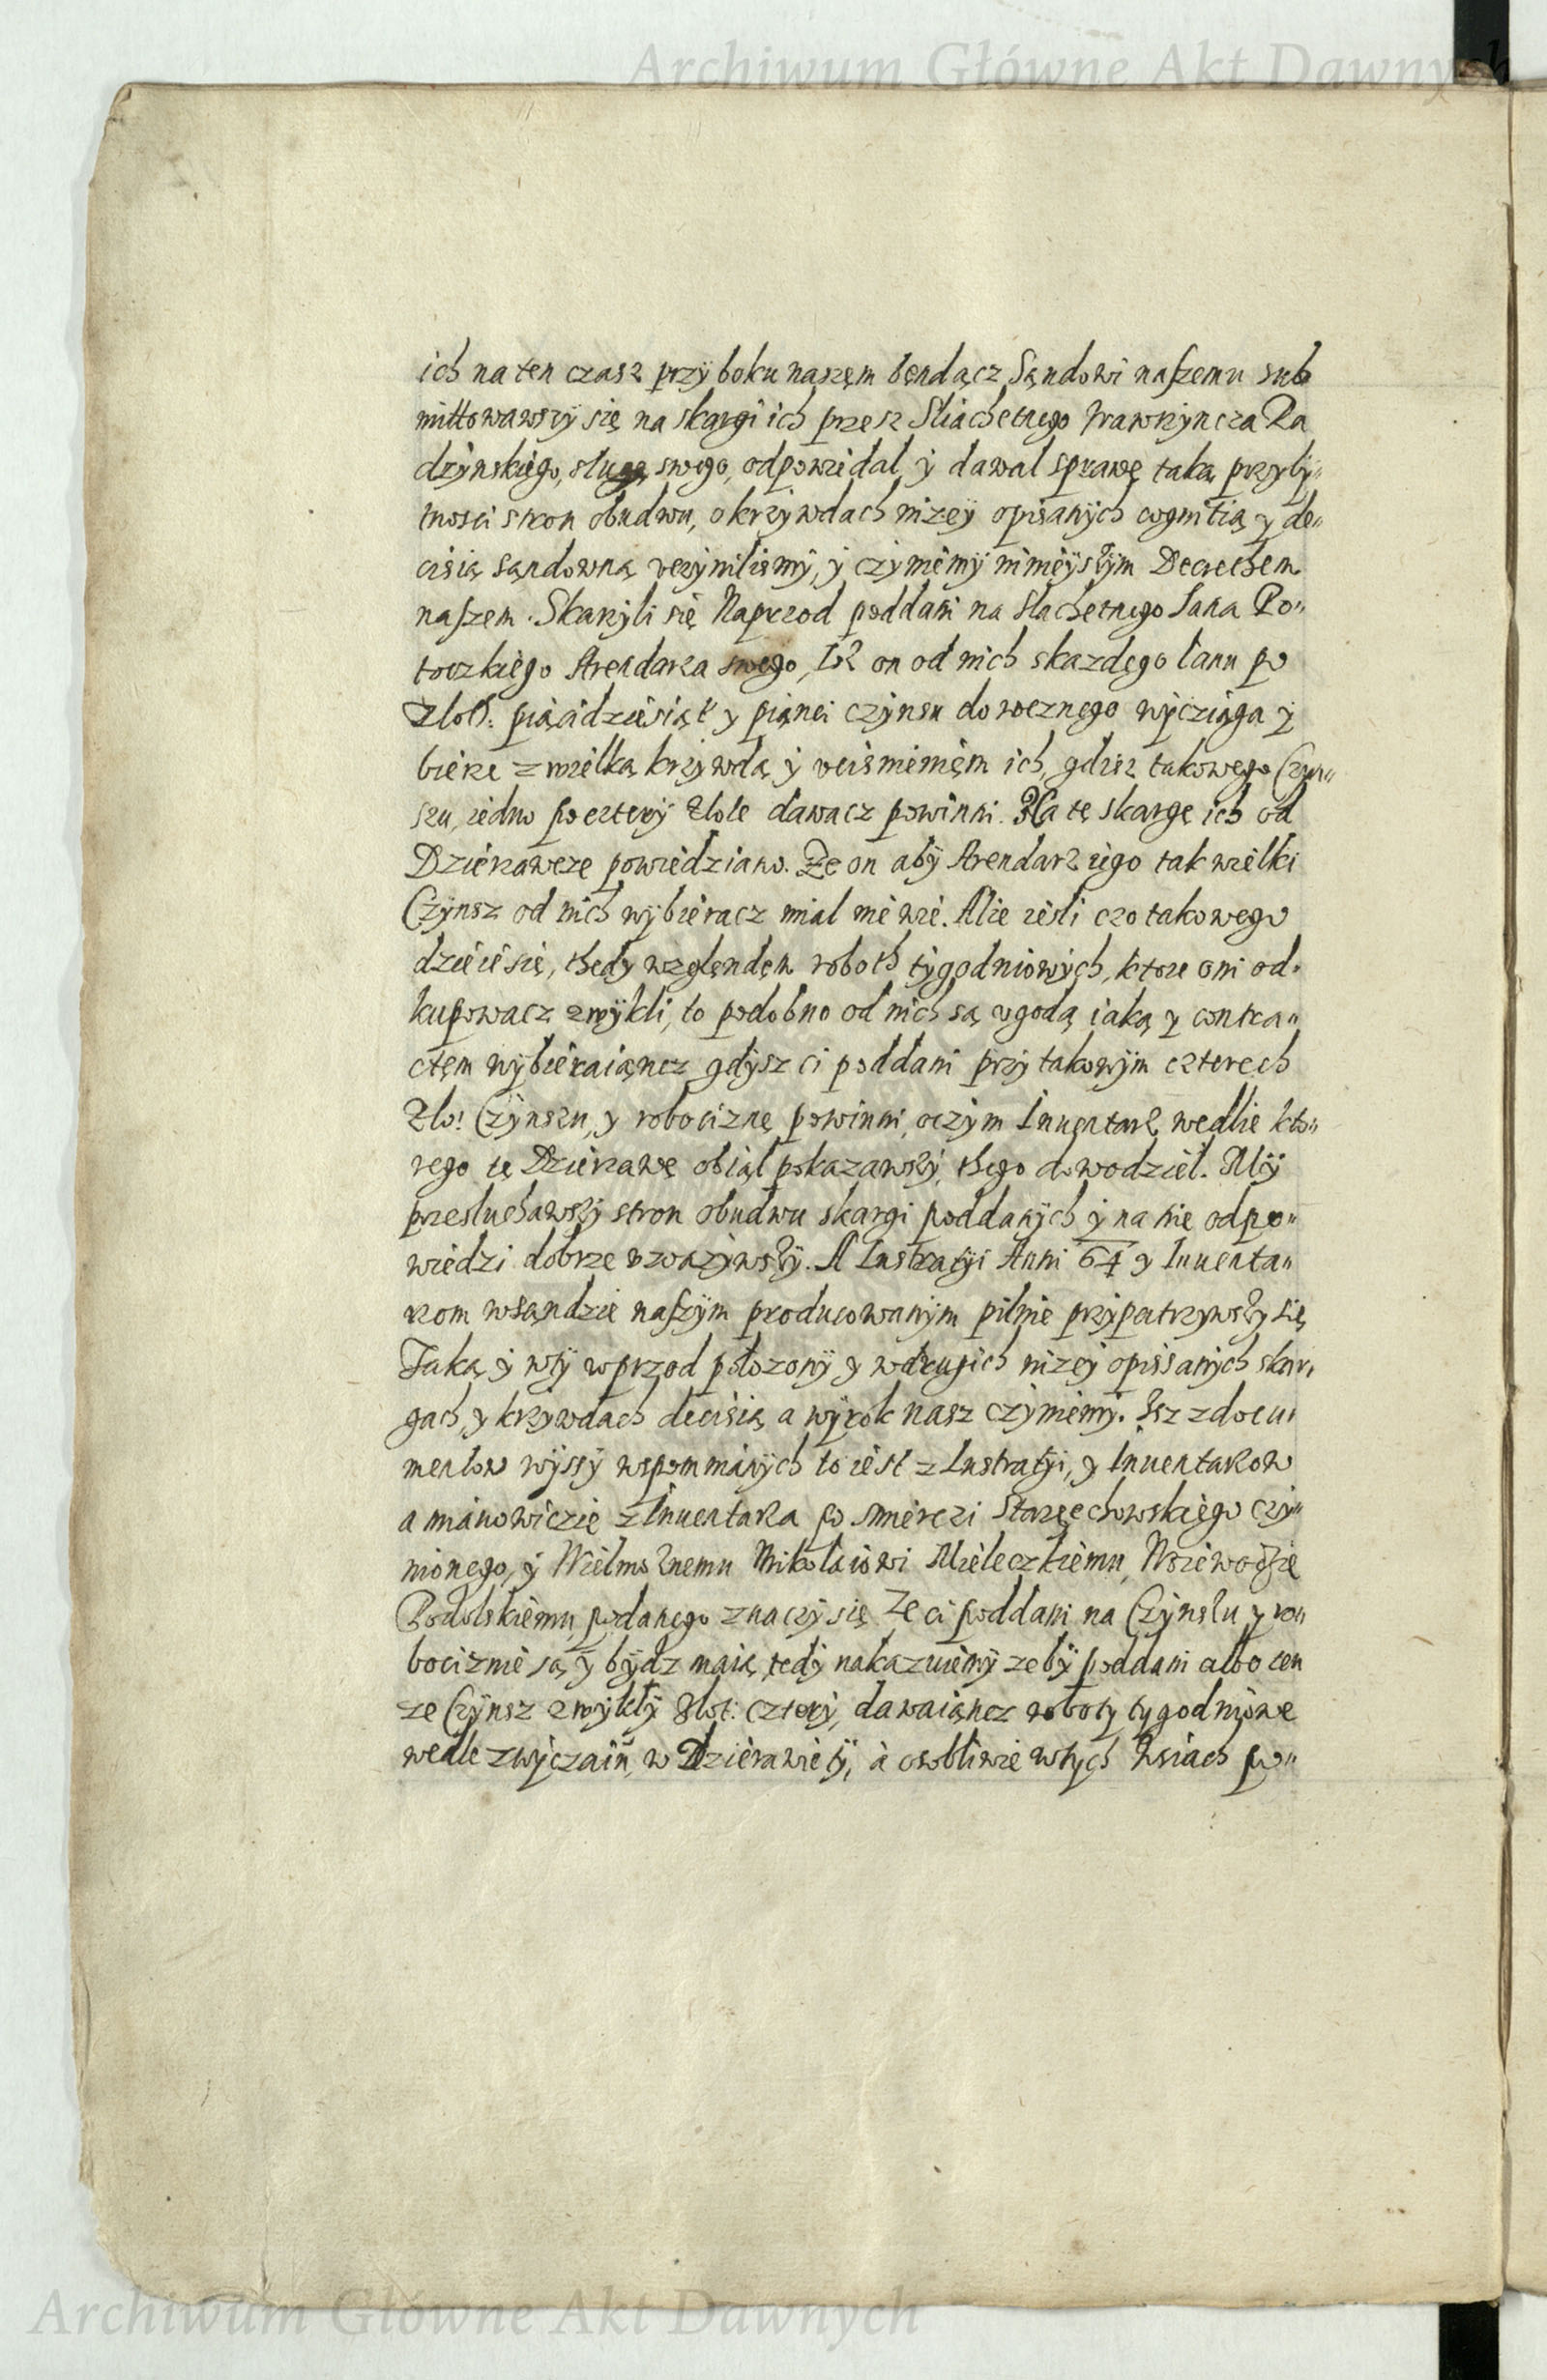 Archiwum Główne Akt Dawnych
ich na ten czasz przy boku naszęm bęndącz Sąndowi naszemu sub
mittowawszy się na skargi ich przesz Sliachetnego Wawrzyncza Ra
dzynskiego, sługę swego, odpowiedal y dawal sprawę taką przyby„
tnosci stron obudwu, o krzywdach nizey opisanych cognitią y de„
cisią sąndowną uczynilismy, y czyniemy ninieyszym Decrethem
naszem. Skarzyli się Naprzod poddani na Slachetnego Jana Po„
toczkiego Arendarza swego, Isz on od nich s kazdego lanu po
Zloth: pięcidziesiąt y piąnci czynsu dorocznego wyciąga y
bierze z wielką krzywdą y uciśnieniem ich, gdisz takowego Czyn„
szu, iedno po cztery zlote dawacz powinni. Na tę skargę ich od
Dzierzawcze powiedziano. Ze on aby Arendarz iego tak wielki
Czynsz od nich wybieracz mial nie wie. Alie iesli czo takowego
dzieie się, thedy wzglęndęm roboth tygodniowych, ktore oni od„
kupowacz zwykli, to podobno od nich są ugodą iaką y contra„
ctęm wybieraiąncz gdysz ci poddani przy takowym czterech
Zlo: Czynszu, y robociznę powinni, oczym Inuentarz wedlie kto„
rego tę Dzierzawę obiąl pokazawszy, thego dowodziel. My
przesluchawszy stron obudwu skargi poddanych y na nie odpo„
wiedzi dobrze uwazywszy. A Lustratyi Anni 64 y Inuenta„
rzom w sąndzie naszym producowanym pilnie przypatrzywszy się
Taką y w ty wprzod położony y w drugich nizey opissanych skar„
gach, y krzywdach decisią a wyrok nasz czyniemy. Isz z docu„
mentow wyssy wspomnianych to iest z Lustratyi, y Inuentarzow
a mianowiczie z Inuentarza po smierczi Starzechowskiego czy„
nionego, y Wielmoznemu Mikolaiowi Mieleczkiemu, Woiewodzie
Podolskiemu podanego znaczy się Ze ci poddani na Czynszu y ro„
bociznie są, y bydz maią, tedy nakazuiemy zeby poddani albo ten
ze Czynsz zwykly Zlot: cztery, dawaiąncz roboty tygodniowe
wedle zwyczaiu, w Dzierzawie ty, a osobliwie w tych Wsiach po„
Archiwum Główne Akt Dawnych